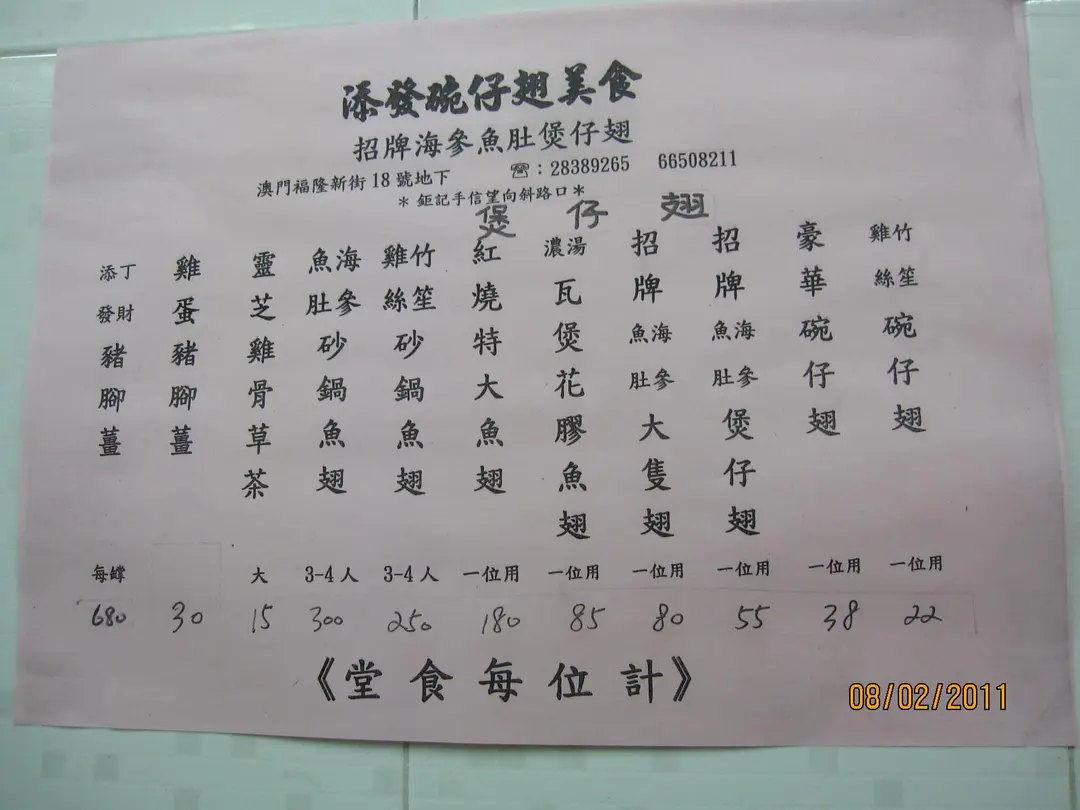 添發碗仔翅美食
招牌海參魚肚煲仔翅
澳門福隆新街18號地下 ☎:28389265 66508211
*鉅記手信望向斜路口*
煲仔翅
竹笙雞絲碗仔翅 一位用 22
豪華碗仔翅 一位用 38
招牌海參魚肚煲仔翅 一位用 55
招牌海參魚肚大隻翅 一位用 80
濃湯瓦煲花膠魚翅 一位用 85
紅燒特大魚翅 一位用 180
竹笙雞絲砂鍋魚翅 3-4人 250
海參魚肚砂鍋魚翅 3-4人 300
靈芝雞骨草茶 大 15
雞蛋豬腳薑 30
添丁發財豬腳薑 每罉 680
《堂食每位計》
08/02/2011